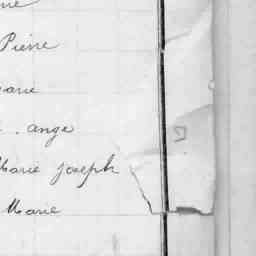 Pierre
Marie
ange
Marie Joseph
Marie